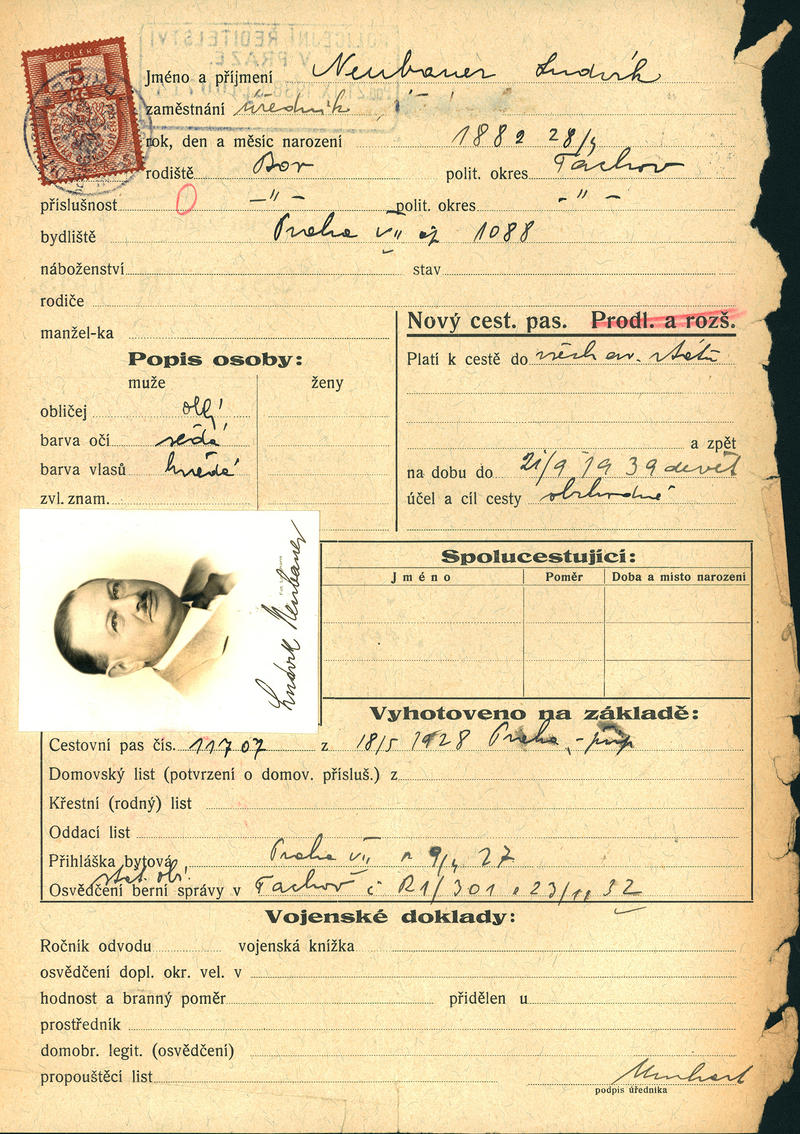 KOLEK
POLICEJNÍ ŘEDITELSTVÍ
V PRAZE.
Jméno a příjmení Neubauer Ludvík
zaměstnání úředník
rok, den a měsíc narození 1882 28/
rodiště Bor polit. okres Tachov
příslušnost 0 —"— polit. okres -"-
bydliště Praha VII čp 1088
náboženství stav
rodiče
manžel-ka
Nový cest. pas. Prodl. a rozš.
Popis osoby:
muže ženy
Platí k cestě do všech ev. států
obličej
barva očí šedá
barva vlasů hnědá
zvl. znam.
a zpět
na dobu do 21/9 1939 devět
účel a cíl cesty obchodně
Ludvík Neubauer
Spolucestující:
Jméno Poměr Doba a místo narození
Vyhotoveno na základě:
Cestovní pas čís. 11707 z 18/5 1928 Praha
Domovský list (potvrzení o domov. přísluš.) z
Křestní (rodný) list
Oddací list
Přihláška bytová Praha VII 9/4 27
stát. obč.
Osvědčení berní správy v Tachov č R1/301 23/11 32
Vojenské doklady:
Ročník odvodu vojenská knížka
osvědčení dopl. okr. vel. v
hodnost a branný poměr přidělen u
prostředník
domobr. legit. (osvědčení)
propouštěcí list
podpis úředníka